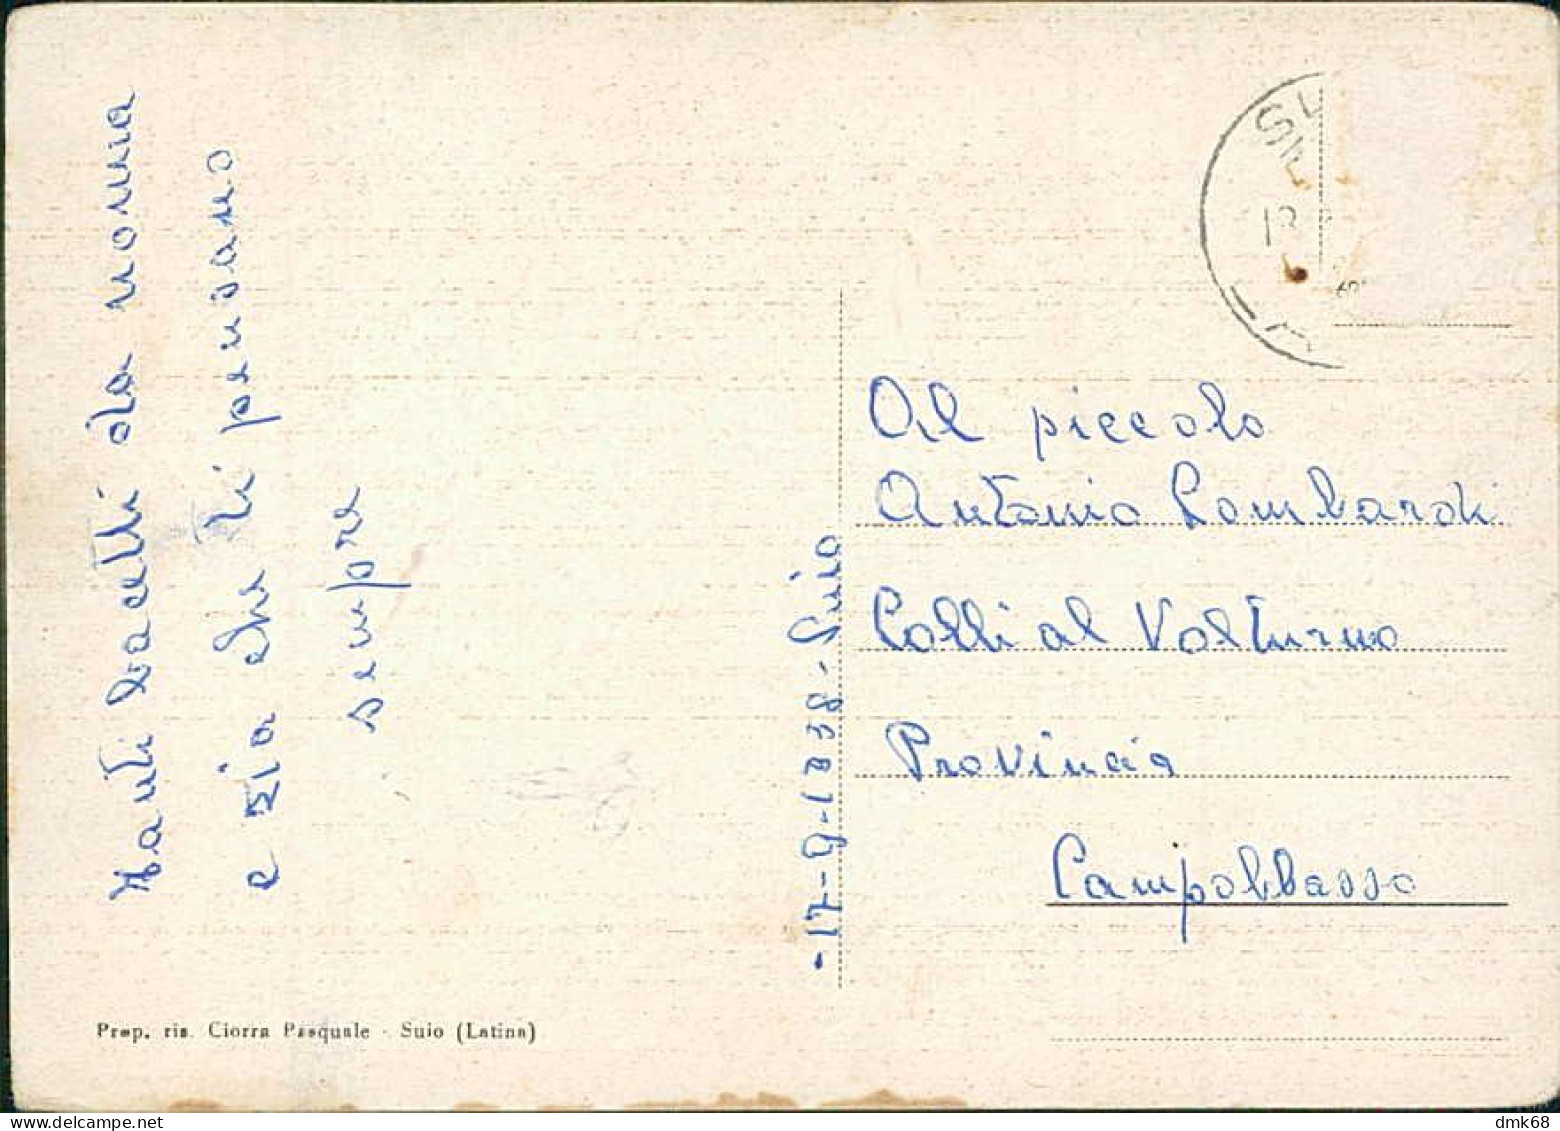 Tanti bacetti dla nonna
e zia che ti pensano
sempre
-17-9-1938-Suio
Al piccolo
Antonio Lombardi
Colli al Volturno
Provincia
Campobbasso
Prop. ris. Ciorra Pasquale - Suio (Latina)
dmk68